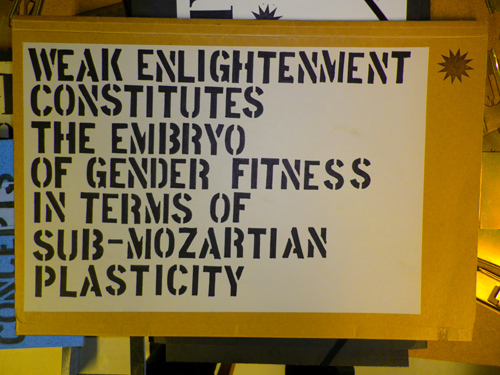 WEAK ENLIGHTENMENT
CONSTITUTES
THE EMBRYO
OF GENDER FITNESS
IN TERMS OF
SUB-MOZARTIAN
PLASTICITY